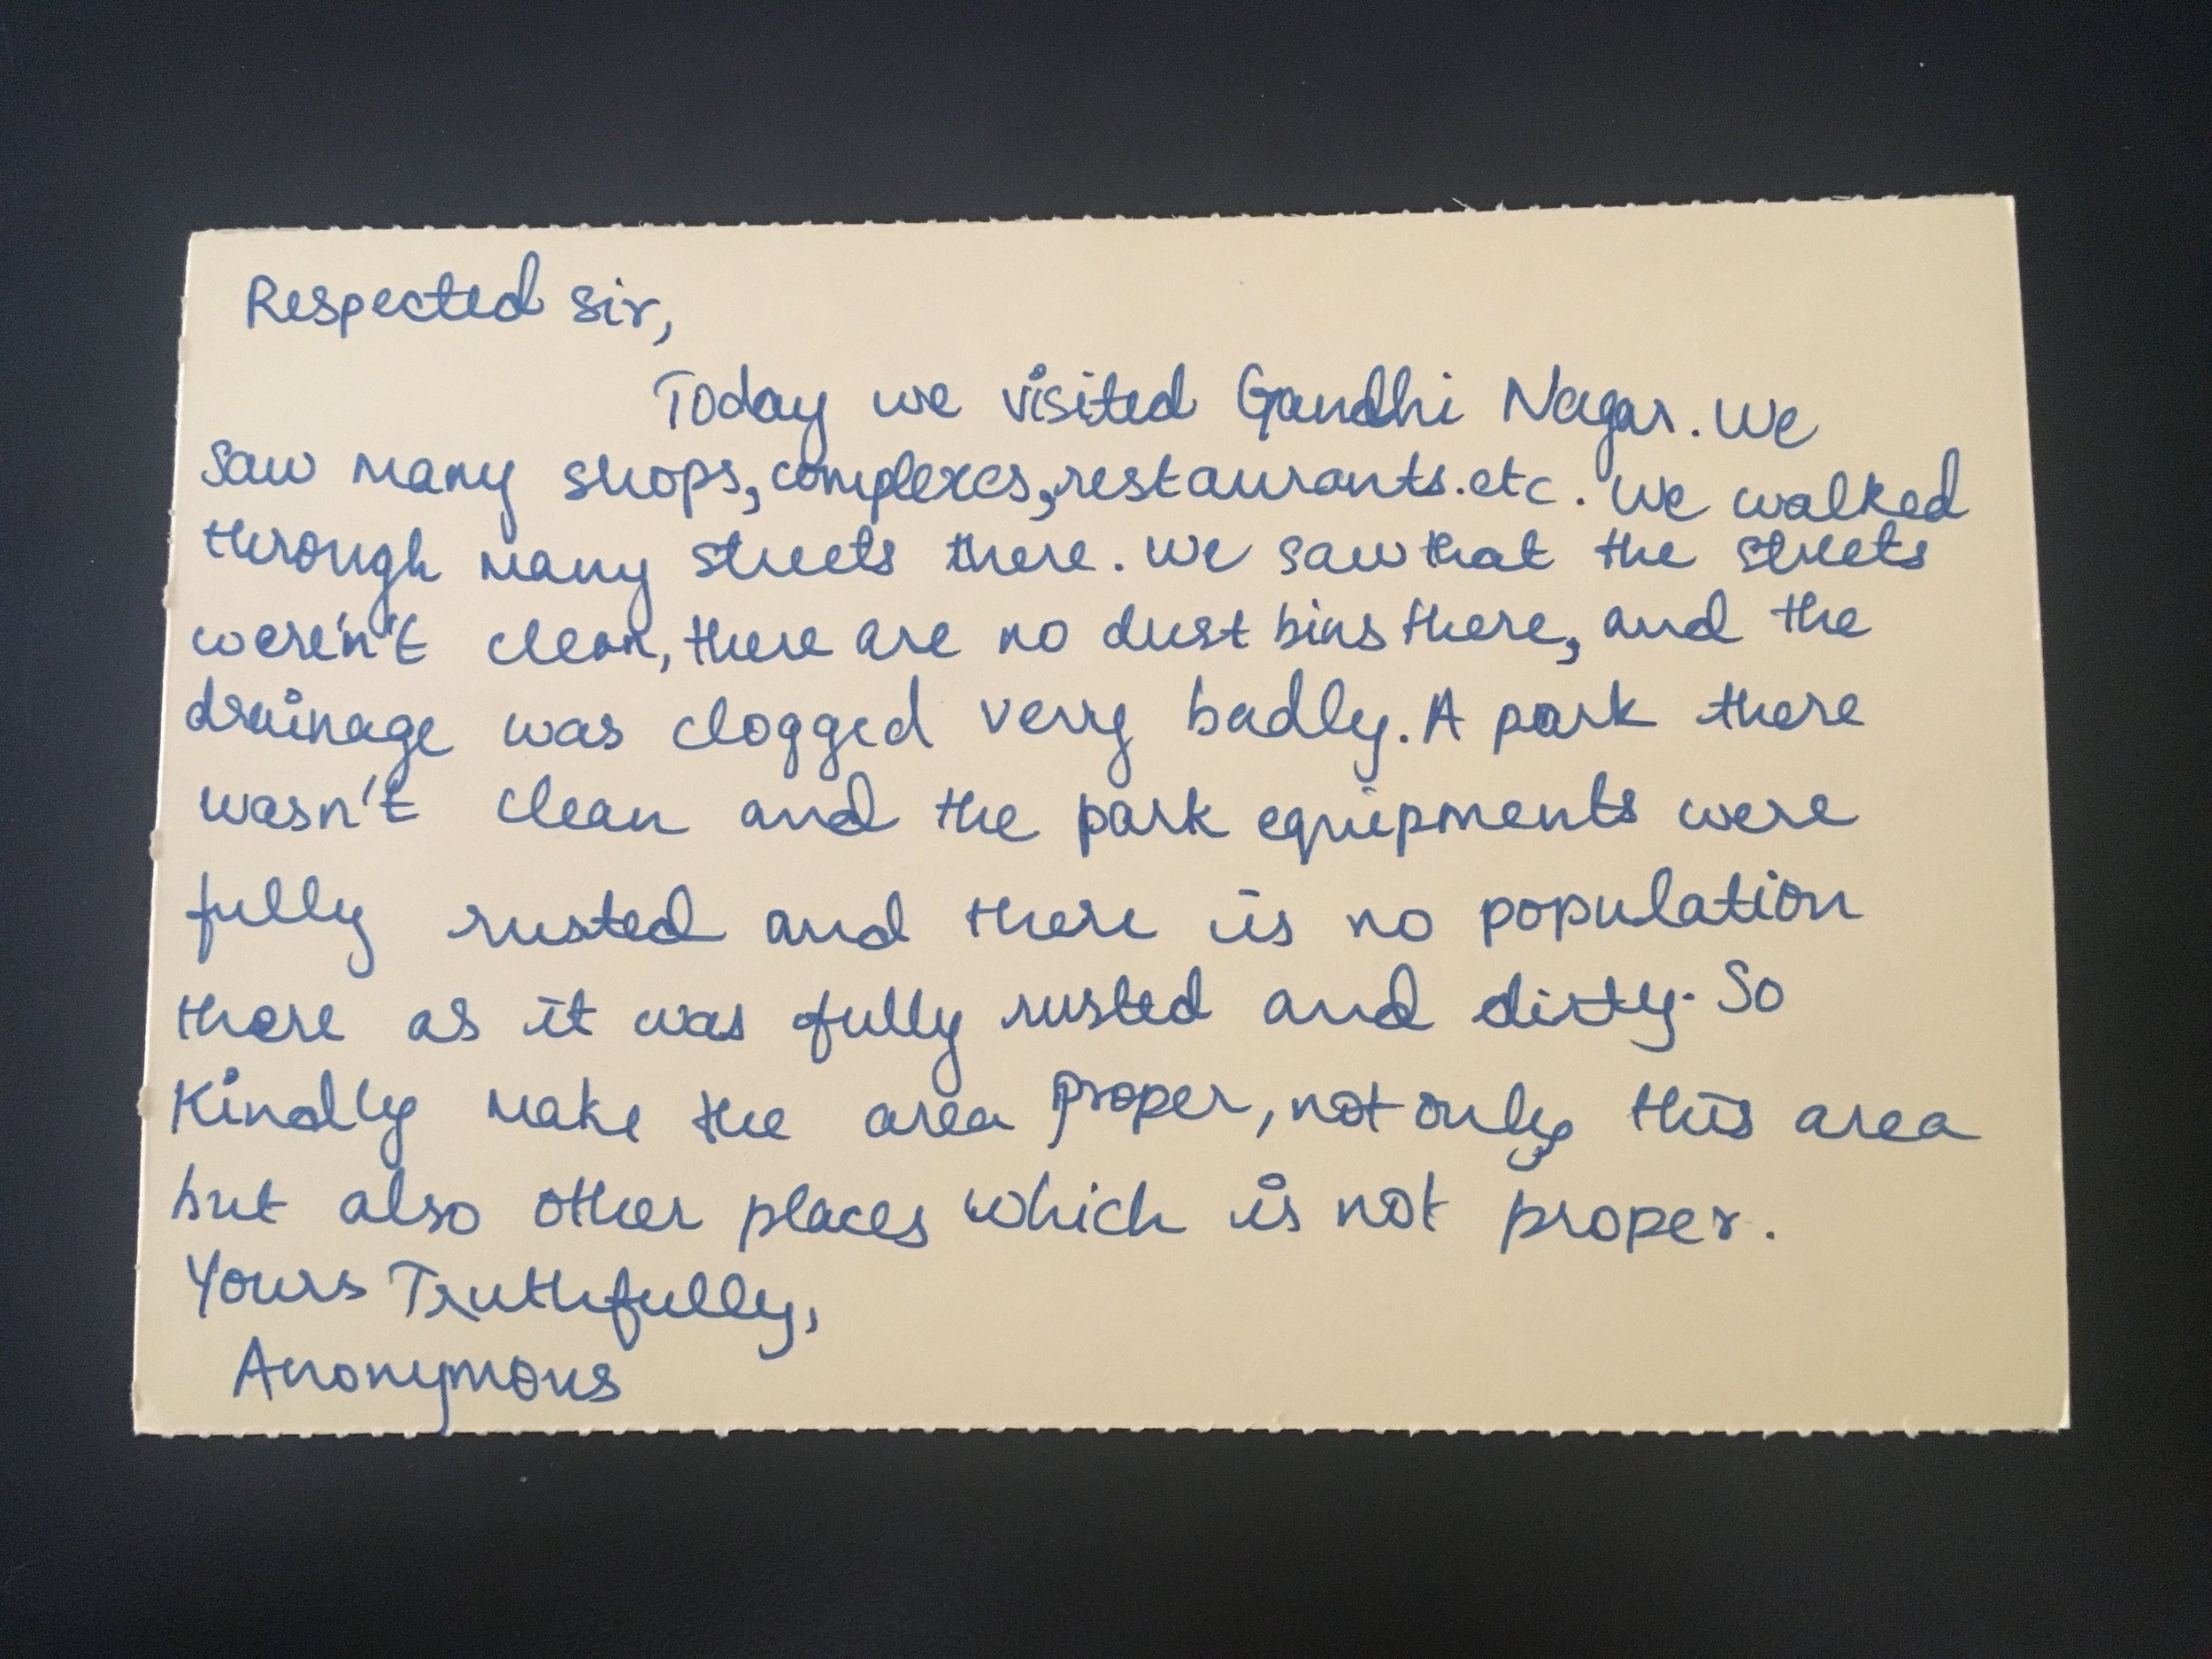 Respected sir,
Today we visited Gandhi Nagar. We
saw many shops, complexes, restaurants.etc. We walked
through many streets there. We saw that the streets
weren't clean, there are no dust bins there, and the
drainage was clogged very badly. A park there
wasn't clean and the park equipments were
fully rusted and there is no population
there as it was fully rusted and dirty. So
Kindly make the area proper, not only this area
but also other places which is not proper.
Yours Truthfully,
Anonymous